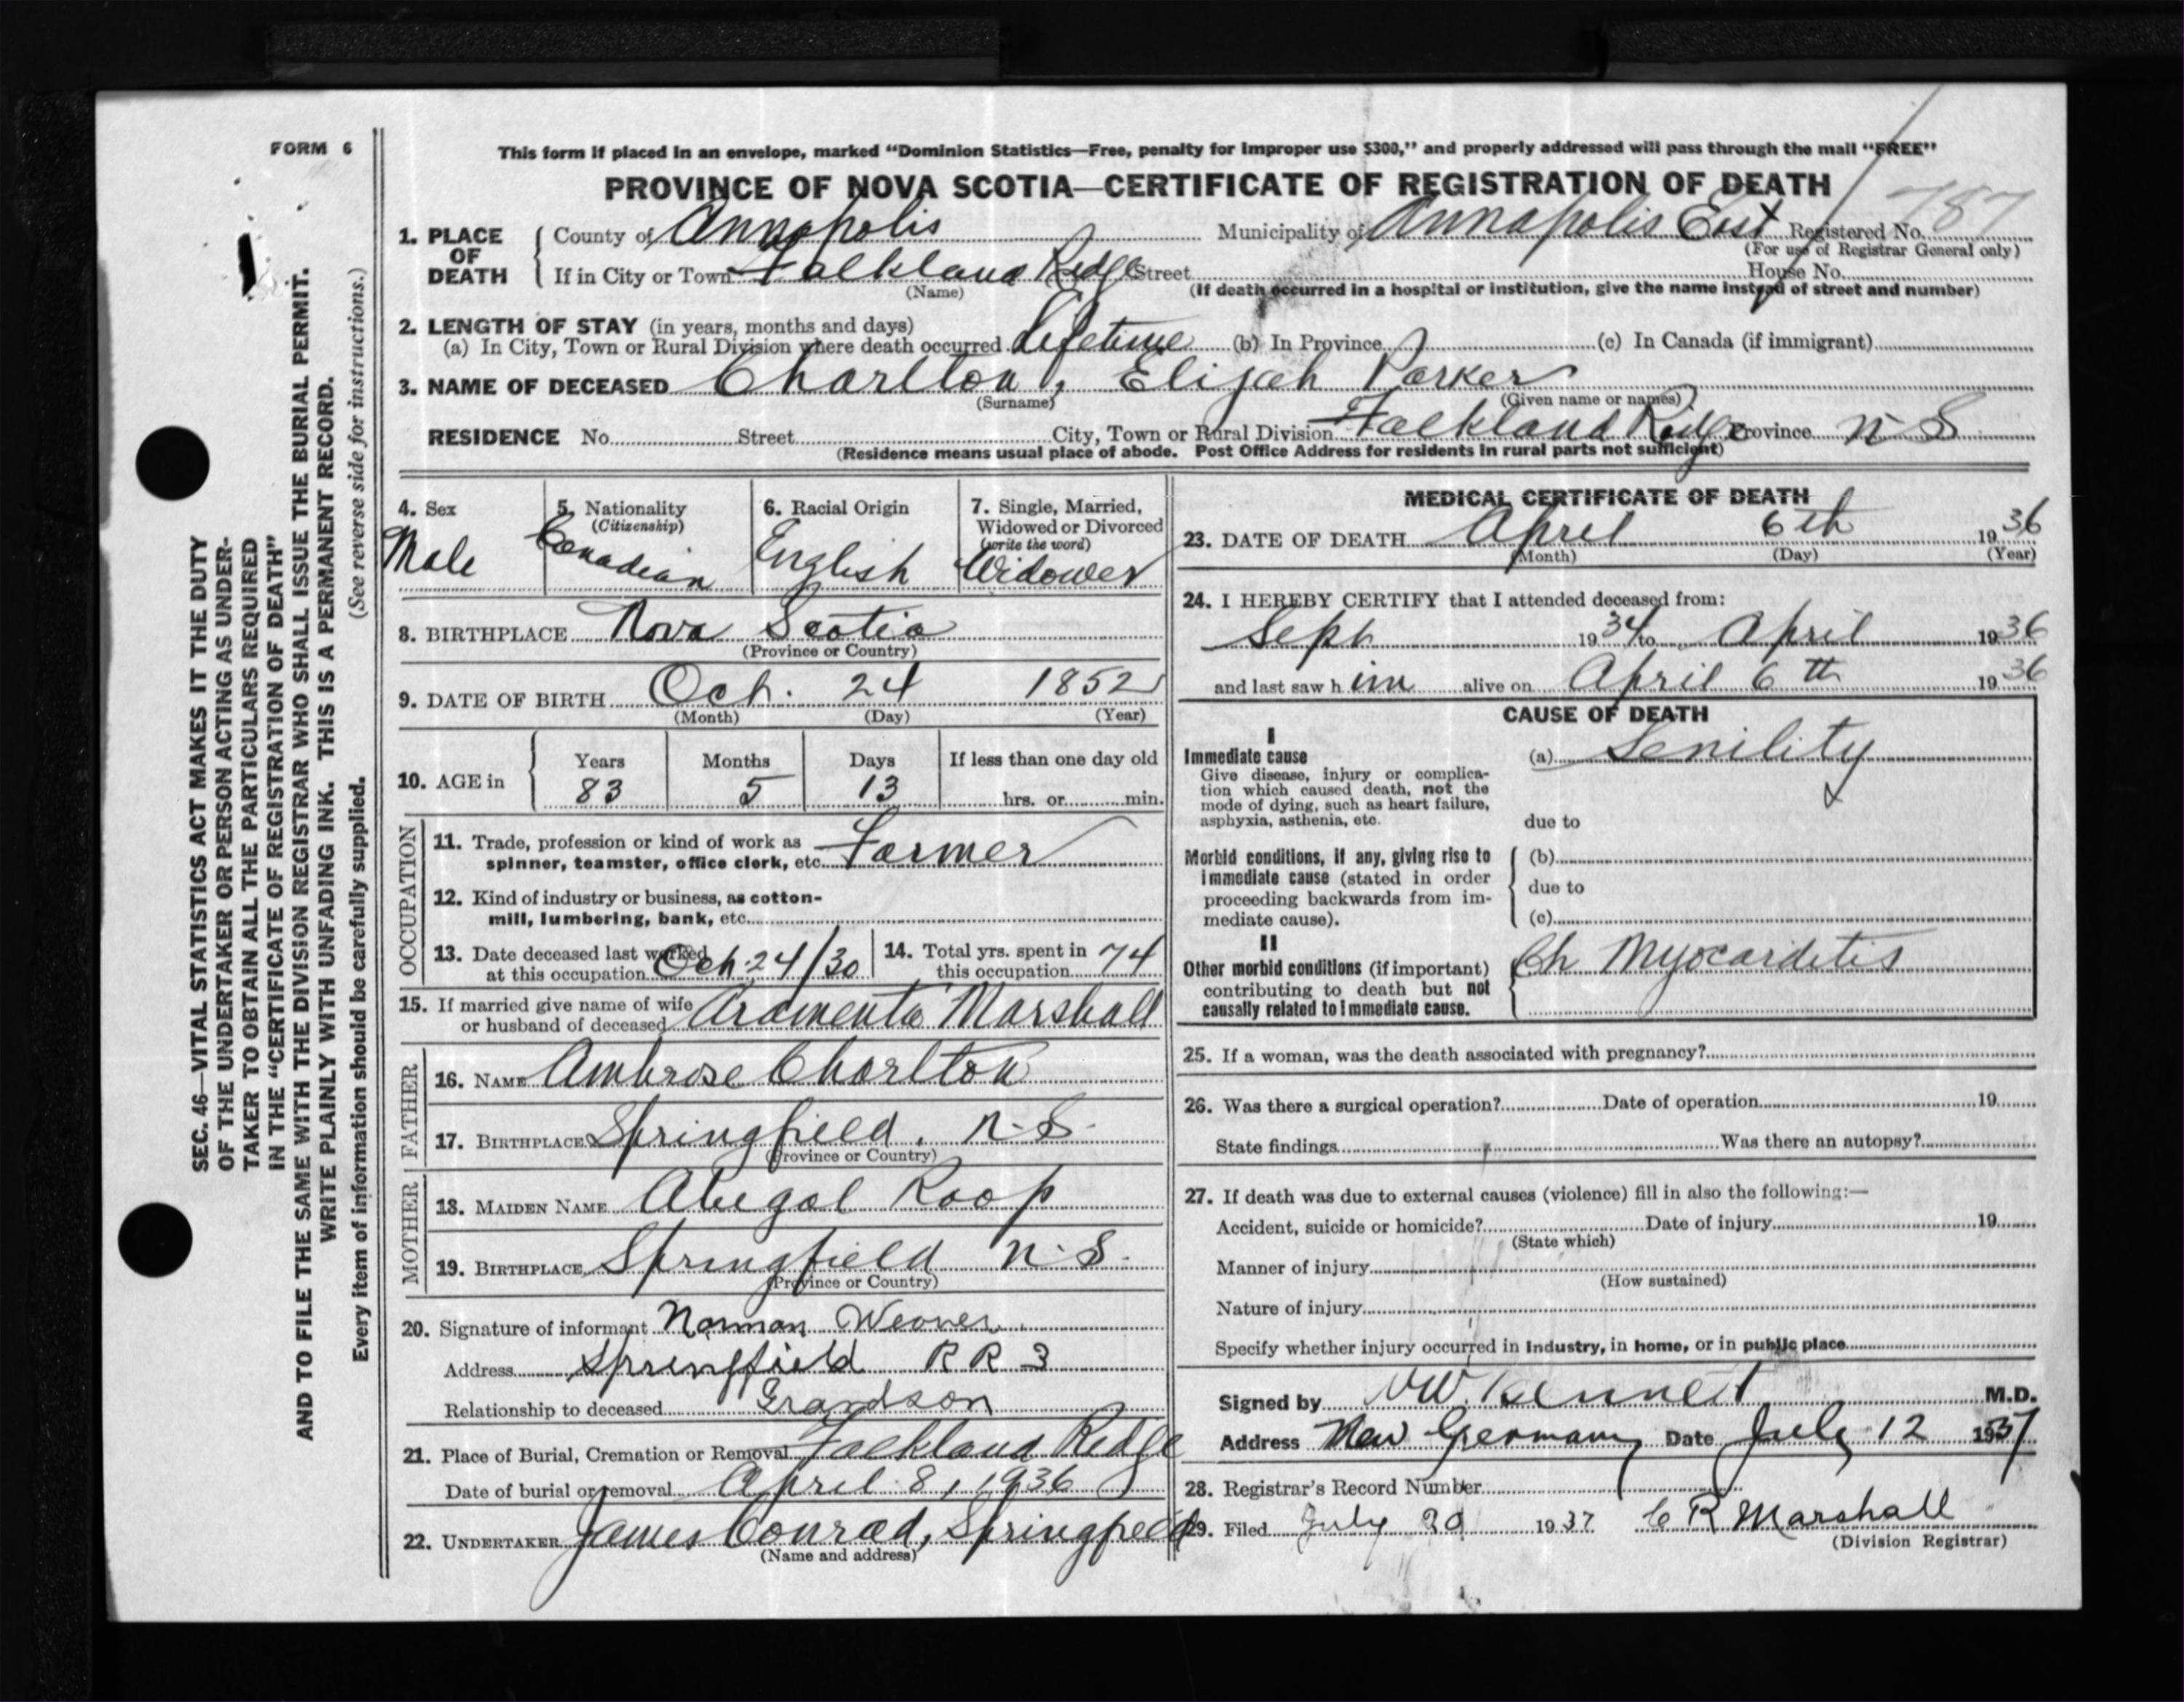 FORM 6
This form if placed in an envelope, marked “Dominion Statistics—Free, penalty for improper use $300,” and properly addressed will pass through the mail “FREE”
PROVINCE OF NOVA SCOTIA—CERTIFICATE OF REGISTRATION OF DEATH
1. PLACE OF DEATH { County of Annapolis Municipality of Annapolis East Registered No. 787
(For use of Registrar General only)
If in City or Town Falkland Ridge Street House No.
(Name) (If death occurred in a hospital or institution, give the name instead of street and number)
2. LENGTH OF STAY (in years, months and days)
(a) In City, Town or Rural Division where death occurred Lifetime (b) In Province (c) In Canada (if immigrant)
3. NAME OF DECEASED Charlton, Elijah Parker
(Surname) (Given name or names)
RESIDENCE No. Street City, Town or Rural Division Falkland Ridge Province N S
(Residence means usual place of abode. Post Office Address for residents in rural parts not sufficient)
4. Sex 5. Nationality 6. Racial Origin 7. Single, Married,
(Citizenship) Widowed or Divorced
(write the word)
Male Canadian English Widower
8. BIRTHPLACE Nova Scotia
(Province or Country)
9. DATE OF BIRTH Oct. 24 1852
(Month) (Day) (Year)
Years Months Days If less than one day old
10. AGE in 83 5 13 hrs. or min.
OCCUPATION
11. Trade, profession or kind of work as
spinner, teamster, office clerk, etc. Farmer
12. Kind of industry or business, as cotton-
mill, lumbering, bank, etc.
13. Date deceased last worked
at this occupation Oct. 24/30
14. Total yrs. spent in
this occupation 74
15. If married give name of wife
or husband of deceased Aramenta Marshall
FATHER
16. NAME Ambrose Charlton
17. BIRTHPLACE Springfield, N.S.
(Province or Country)
MOTHER
18. MAIDEN NAME Abegal Roop
19. BIRTHPLACE Springfield N.S.
(Province or Country)
20. Signature of informant Norman Weaver
Address Springfield R R 3
Relationship to deceased Grandson
21. Place of Burial, Cremation or Removal Falkland Ridge
Date of burial or removal April 8, 1936
22. UNDERTAKER James Conrad, Springfield
(Name and address)
MEDICAL CERTIFICATE OF DEATH
23. DATE OF DEATH April 6th 1936
(Month) (Day) (Year)
24. I HEREBY CERTIFY that I attended deceased from:
Sept 1934 to April 1936
and last saw h im alive on April 6th 1936
CAUSE OF DEATH
I
Immediate cause (a) Senility
Give disease, injury or complica-
tion which caused death, not the
mode of dying, such as heart failure,
asphyxia, asthenia, etc. due to
Morbid conditions, if any, giving rise to
immediate cause (stated in order
proceeding backwards from im-
mediate cause).
(b)
due to
(c)
II
Other morbid conditions (if important)
contributing to death but not
causally related to immediate cause.
Ch Myocarditis
25. If a woman, was the death associated with pregnancy?
26. Was there a surgical operation? Date of operation 19
State findings Was there an autopsy?
27. If death was due to external causes (violence) fill in also the following:—
Accident, suicide or homicide? Date of injury 19
(State which)
Manner of injury
(How sustained)
Nature of injury
Specify whether injury occurred in industry, in home, or in public place
Signed by M.D.
Address New Germany Date July 12 1937
28. Registrar's Record Number
29. Filed July 1937 C R Marshall
(Division Registrar)
SEC. 46—VITAL STATISTICS ACT MAKES IT THE DUTY
OF THE UNDERTAKER OR PERSON ACTING AS UNDER-
TAKER TO OBTAIN ALL THE PARTICULARS REQUIRED
IN THE “CERTIFICATE OF REGISTRATION OF DEATH”
AND TO FILE THE SAME WITH THE DIVISION REGISTRAR WHO SHALL ISSUE THE BURIAL PERMIT.
WRITE PLAINLY WITH UNFADING INK. THIS IS A PERMANENT RECORD.
Every item of information should be carefully supplied. (See reverse side for instructions.)